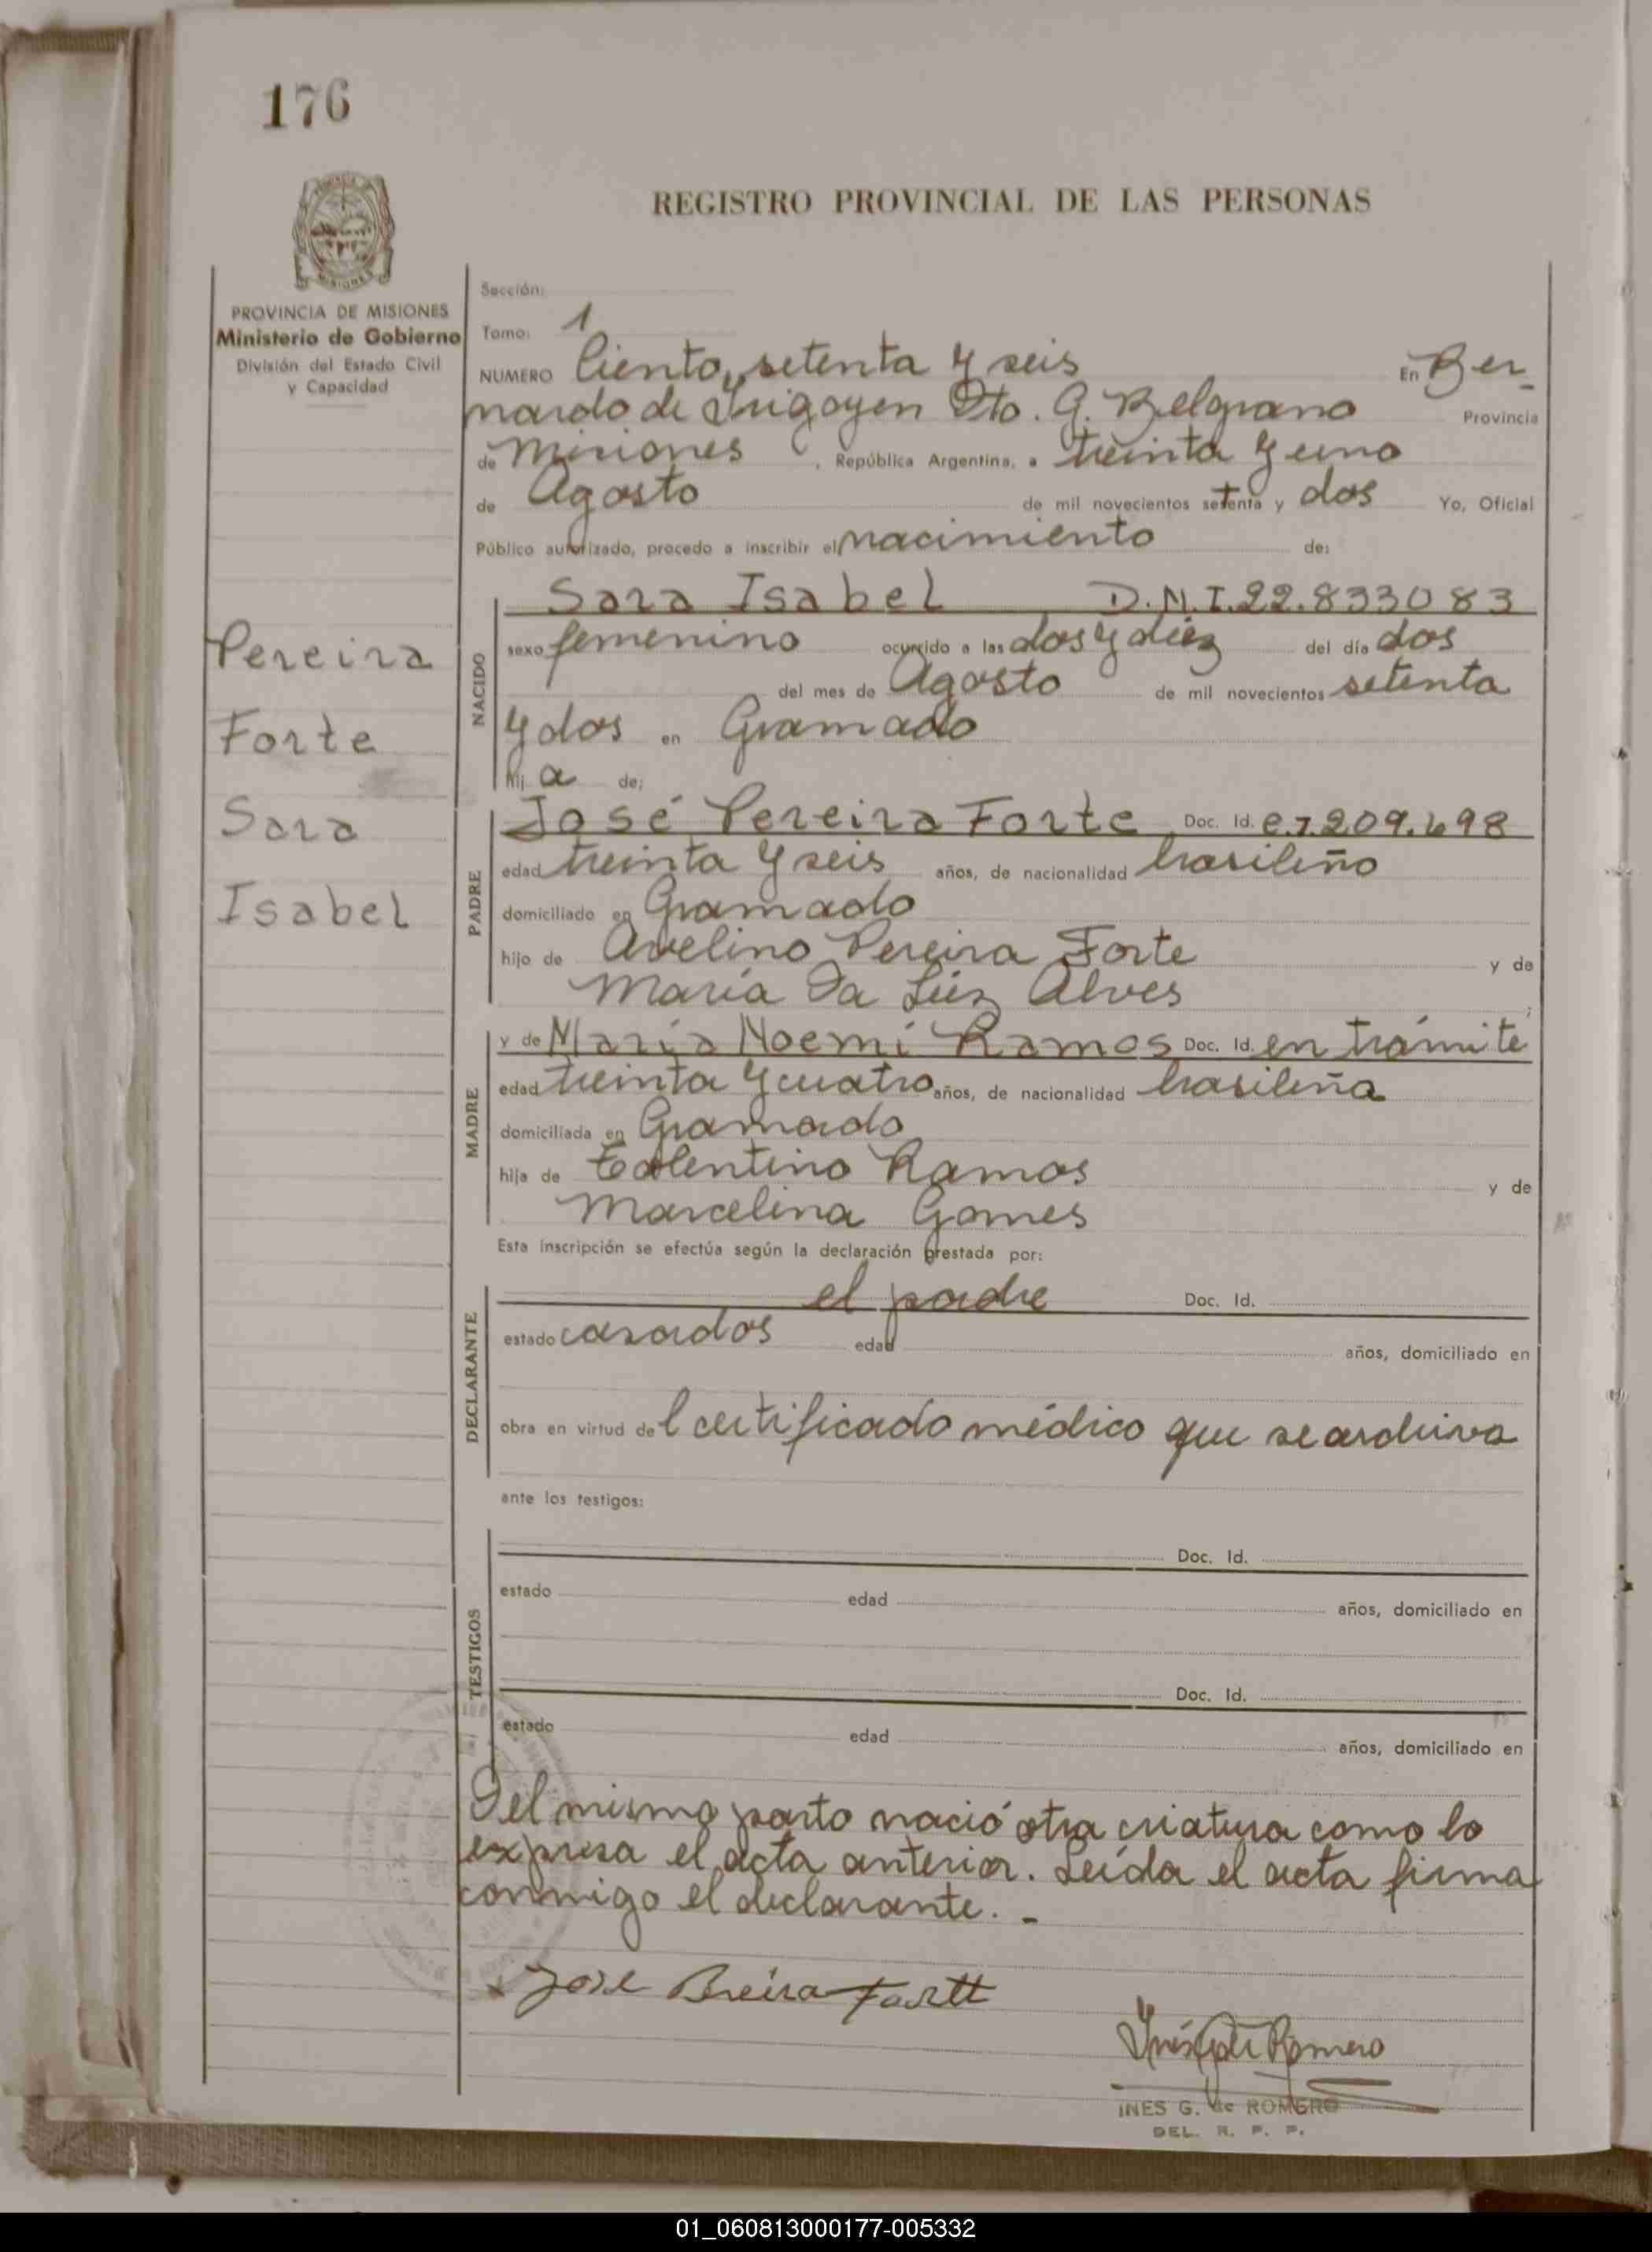 176
REGISTRO PROVINCIAL DE LAS PERSONAS
PROVINCIA DE MISIONES
Ministerio de Gobierno
División del Estado Civil
y Capacidad
Pereira
Forte
Sara
Isabel
Sección:
Tomo: 1
NUMERO Ciento setenta y seis En Ber-
nardo de Irigoyen Dto. G. Belgrano Provincia
de Misiones, República Argentina, a treinta y uno
de Agosto de mil novecientos setenta y dos Yo, Oficial
Público autorizado, procedo a inscribir el nacimiento de:
NACIDO
Sara Isabel D.N.I. 22.833083
sexo femenino ocurrido a las dos y diez del día dos
del mes de Agosto de mil novecientos setenta
y dos en Gramado
hij a de;
PADRE
José Pereira Forte Doc. Id. C.I. 209.698
edad treinta y seis años, de nacionalidad brasileño
domiciliado en Gramado
hijo de Avelino Pereira Forte y de
María Da Lúz Alves
MADRE
y de María Noemí Ramos Doc. Id. en trámite
edad treinta y cuatro años, de nacionalidad brasileña
domiciliada en Gramado
hija de Tolentino Ramos y de
Marcelina Gomes
Esta inscripción se efectúa según la declaración prestada por:
DECLARANTE
el padre Doc. Id.
estado casados edad años, domiciliado en
obra en virtud de l certificado médico que se archiva
ante los testigos:
TESTIGOS
Doc. Id.
estado edad años, domiciliado en
Doc. Id.
estado edad años, domiciliado en
Del mismo parto nació otra criatura como lo
expresa el acta anterior. Leída el acta firma
conmigo el declarante. -
José Pereira Forte
Inés G. de Romero
INES G. de ROMERO
DEL. R. P. P.
01_060813000177-005332